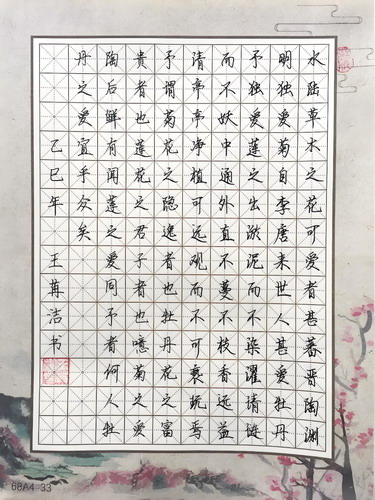 水陆草木之花可爱者甚蕃晋陶渊
明独爱菊自李唐来世人甚爱牡丹
予独爱莲之出淤泥而不染濯清涟
而不妖中通外直不蔓不枝香远益
清亭亭净植可远观而不可亵焉
予谓菊花之隐逸者也牡丹花之富
贵者也莲花之君子者也噫菊之爱
陶后鲜有闻莲之爱同予者何人牡
丹之爱宜乎众矣
乙巳年 王苒洁书
68A4-33